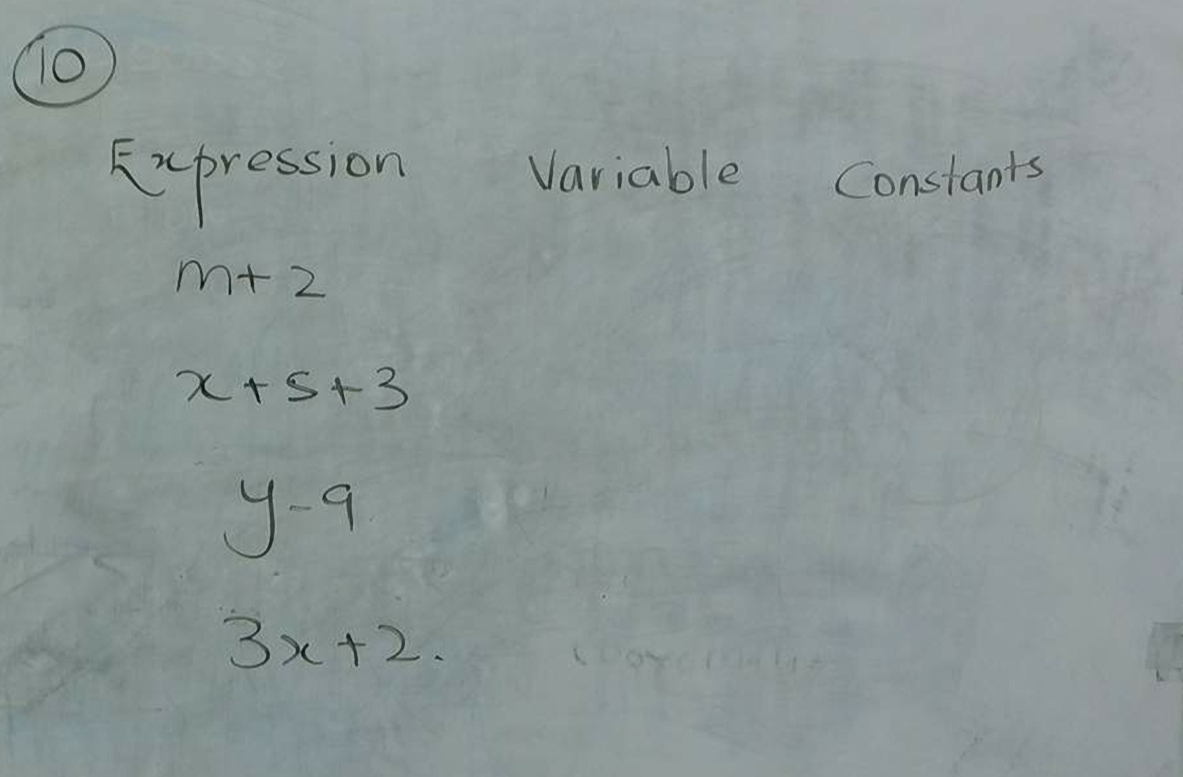 10
Expression Variable Constants
m+2
x+s+3
y-9
3x+2.